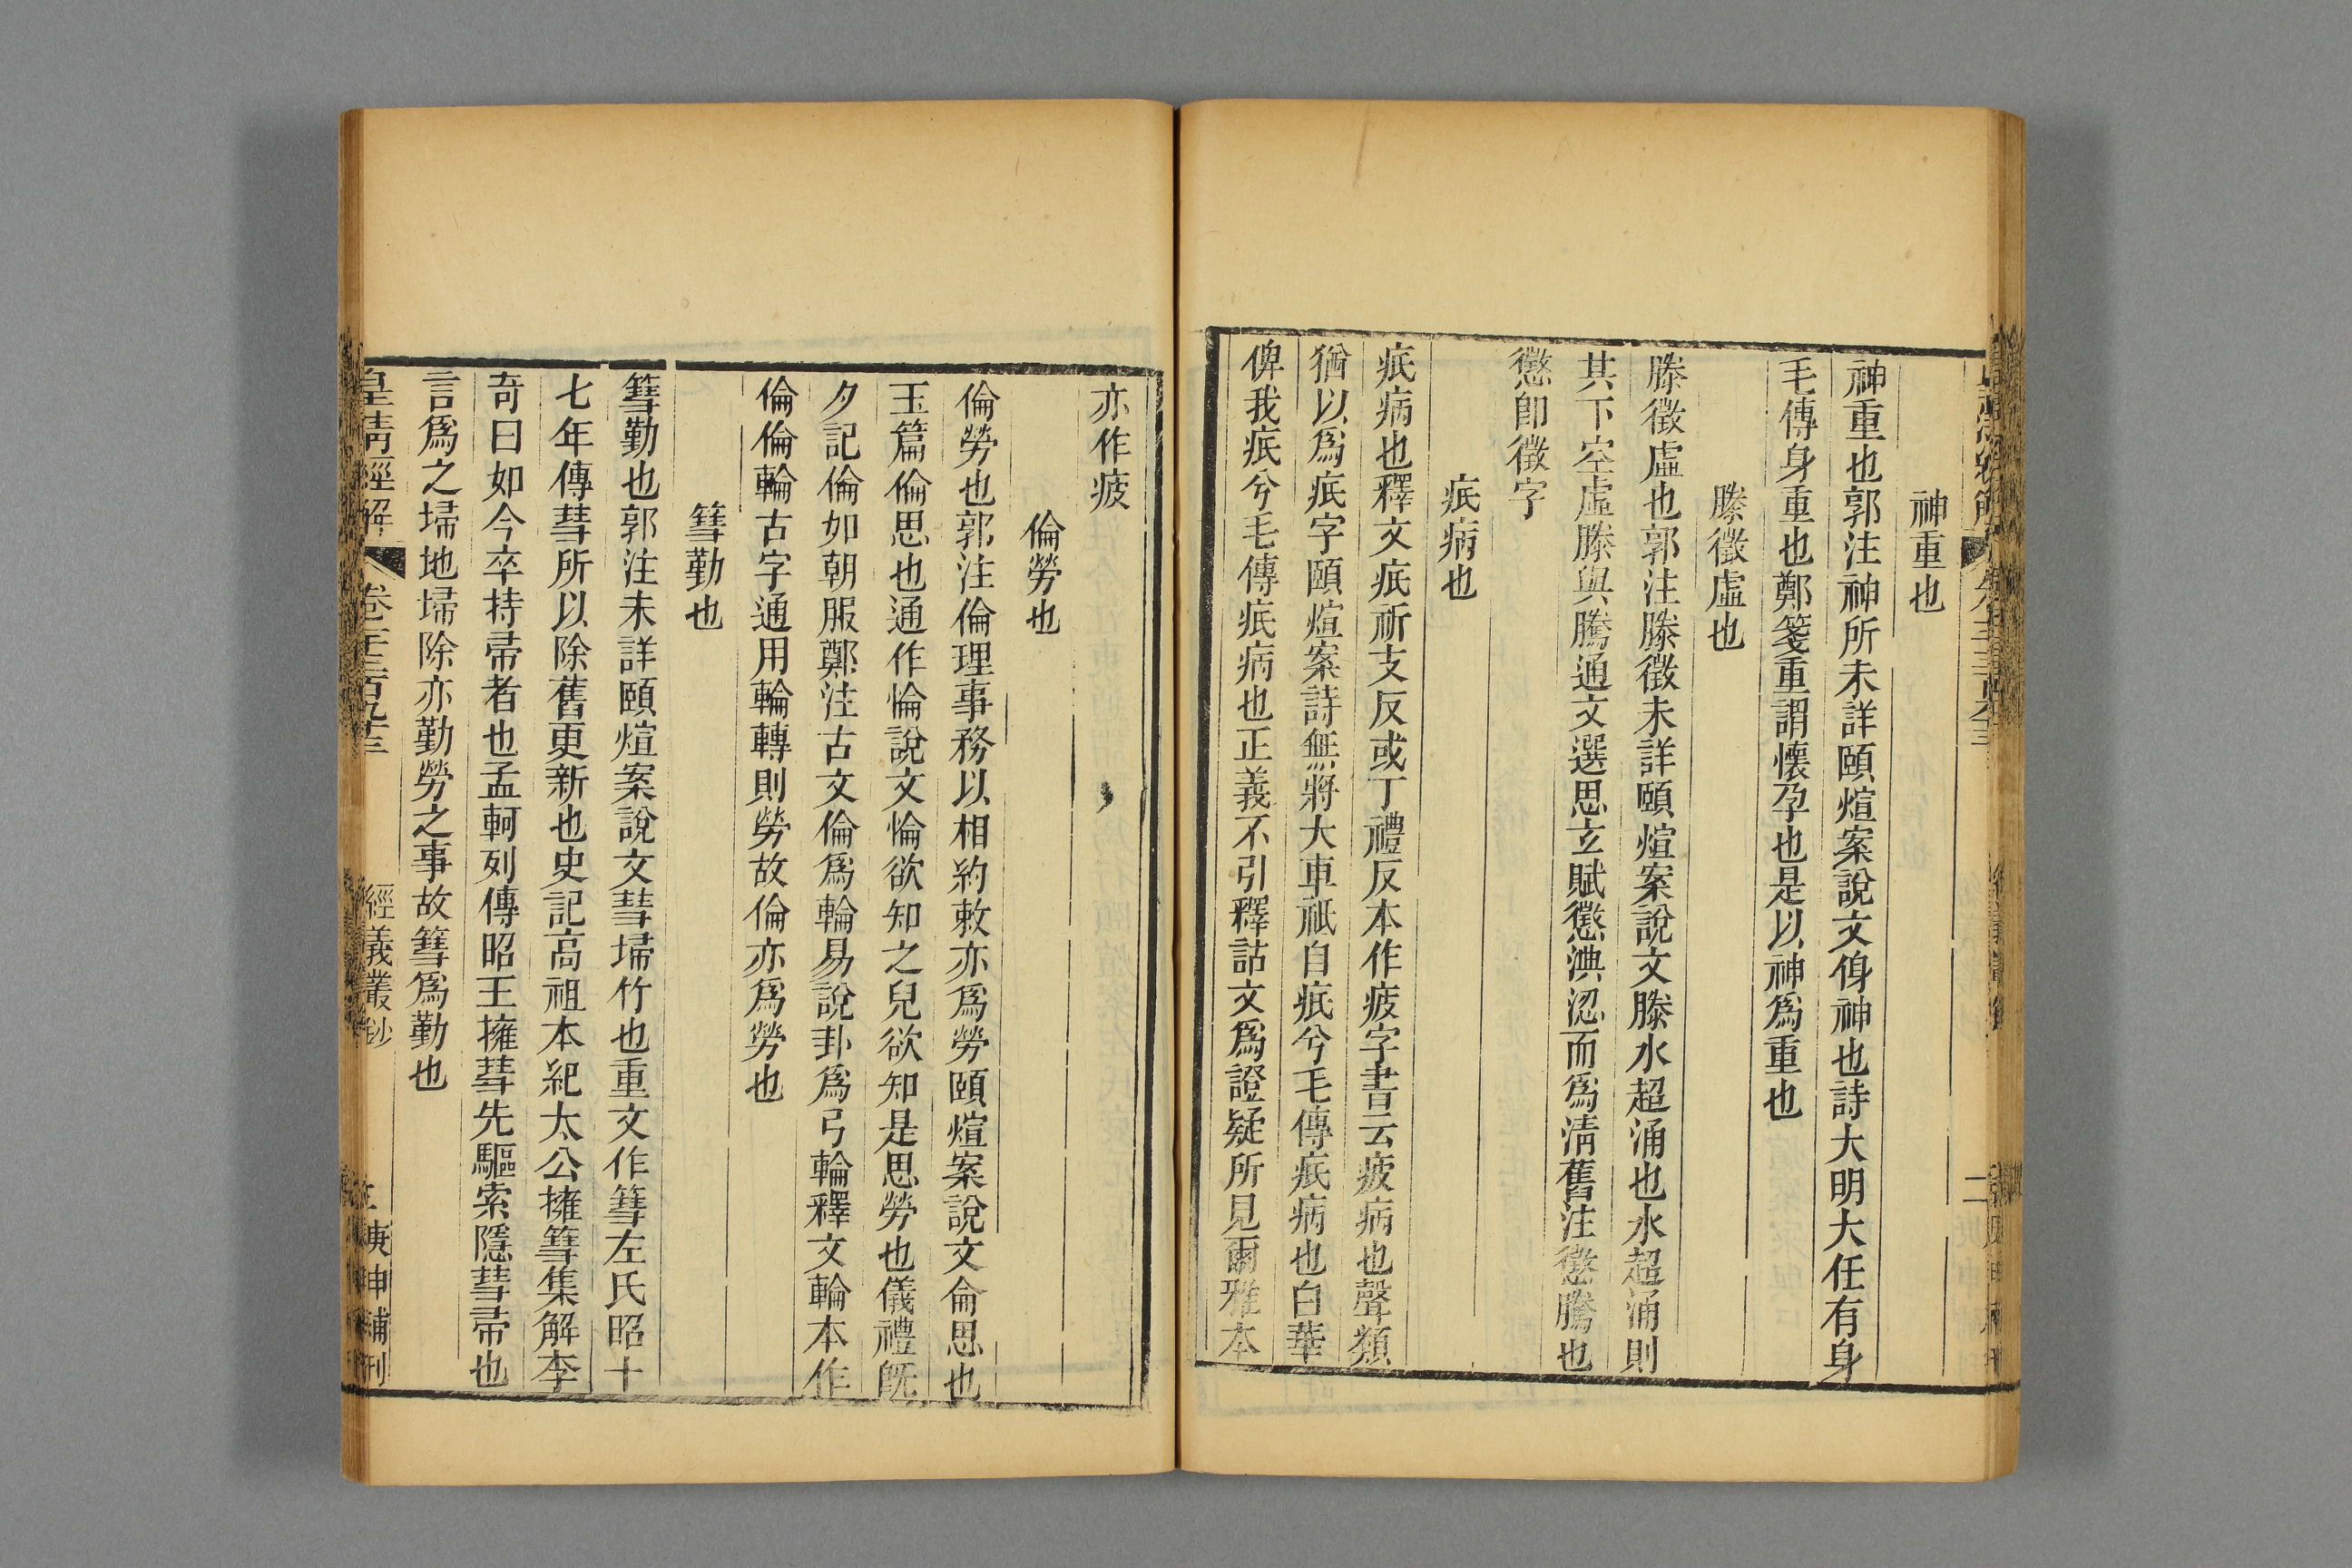 神重也
神重也郭注神所未詳頤煊案說文㑗神也詩大明大任有身
毛傳身重也鄭箋重謂懷孕也是以神爲重也
滕徵虛也
滕徵虛也郭注滕徵未詳頤煊案說文滕水超涌也水超涌則
其下空虛滕與騰通文選思玄賦懲淟涊而爲淸舊注懲騰也
懲卽徵字
疧病也
疧病也釋文疧祈支反或丁禮反本作疲字書云疲病也聲類
猶以爲疧字頤煊案詩無將大車祇自疧兮毛傳疧病也白華
俾我疧兮毛傳疧病也正義不引釋詁文爲證疑所見爾雅本
亦作疲
倫勞也
倫勞也郭注倫理事務以相約敕亦爲勞頤煊案說文侖思也
玉篇倫思也通作惀說文惀欲知之皃欲知是思勞也儀禮旣
夕記倫如朝服鄭注古文倫爲輪易說卦爲弓輪釋文輪本作
倫倫輪古字通用輪轉則勞故倫亦爲勞也
篲勤也
篲勤也郭注未詳頤煊案說文彗埽竹也重文作篲左氏昭十
七年傳彗所以除舊更新也史記高祖本紀太公擁篲集解李
奇曰如今卒持帚者也孟軻列傳昭王擁彗先驅索隱彗帚也
言爲之埽地埽除亦勤勞之事故篲爲勤也
皇淸經解
經義叢鈔
庚申補刊